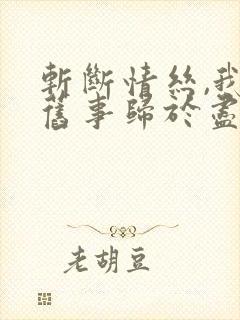 斬斷情絲,我
舊事歸於盡
老胡豆